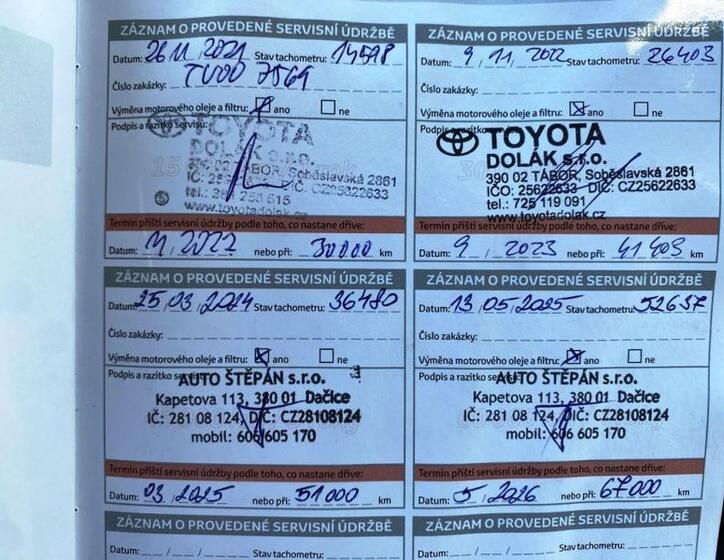 ZÁZNAM O PROVEDENÉ SERVISNÍ ÚDRŽBĚ
Datum: 26 , 11 , 2021 Stav tachometru: 14598
Číslo zakázky: TV00 7569
Výměna motorového oleje a filtru: ☒ ano ☐ ne
Podpis a razítko servisu:
TOYOTA
DOLÁK s.r.o.
390 02 TÁBOR, Soběslavská 2861
DIČ: CZ25622633
www.toyotadolak.cz
Termín příští servisní údržby podle toho, co nastane dříve:
Datum: 11 / 2022 nebo při: 30000 km
ZÁZNAM O PROVEDENÉ SERVISNÍ ÚDRŽBĚ
Datum: 9 , 11 , 2022 Stav tachometru: 26403
Číslo zakázky:
Výměna motorového oleje a filtru: ☒ ano ☐ ne
Podpis a razítko
TOYOTA
DOLÁK s.r.o.
390 02 TÁBOR, Soběslavská 2861
IČO: 25622633 DIČ: CZ25622633
tel.: 725 119 091
www.toyotadolak.cz
Termín příští servisní údržby podle toho, co nastane dříve:
Datum: 9 , 2023 nebo při: 41403 km
ZÁZNAM O PROVEDENÉ SERVISNÍ ÚDRŽBĚ
Datum: 25 , 03 , 2024 Stav tachometru: 36480
Číslo zakázky:
Výměna motorového oleje a filtru: ☒ ano ☐ ne
Podpis a razítko servisu:
AUTO ŠTĚPÁN s.r.o.
Kapetova 113, 380 01 Dačice
IČ: 281 08 124, DIČ: CZ28108124
mobil: 606 605 170
Termín příští servisní údržby podle toho, co nastane dříve:
Datum: 03 , 2025 nebo při: 51000 km
ZÁZNAM O PROVEDENÉ SERVISNÍ ÚDRŽBĚ
Datum: 13 , 05 , 2025 Stav tachometru: 52657
Číslo zakázky:
Výměna motorového oleje a filtru: ☒ ano ☐ ne
Podpis a razítko
AUTO ŠTĚPÁN s.r.o.
Kapetova 113, 380 01 Dačice
IČ: 281 08 124, DIČ: CZ28108124
mobil: 606 605 170
Termín příští servisní údržby podle toho, co nastane dříve:
Datum: 5 , 2026 nebo při: 67000 km
ZÁZNAM O PROVEDENÉ SERVISNÍ ÚDRŽBĚ
Datum: Stav tachometru:
ZÁZNAM O PROVEDENÉ SERVISNÍ ÚDRŽBĚ
Datum: Stav tachometru: